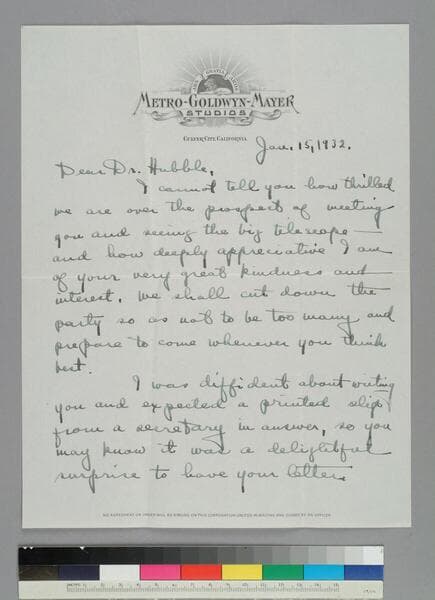 ARS GRATIA ARTIS
METRO-GOLDWYN-MAYER
STUDIOS
CULVER CITY, CALIFORNIA
Jan. 15, 1932.
Dear Dr. Hubble,
I cannot tell you how thrilled
we are over the prospect of meeting
you and seeing the big telescope —
and how deeply appreciative I am
of your very great kindness and
interest. We shall cut down the
party so as not to be too many and
prepare to come whenever you think
best.
I was diffident about writing
you and expected a printed slip
from a secretary in answer, so you
may know it was a delightful
surprise to have your letter.
NO AGREEMENT OR ORDER WILL BE BINDING ON THIS CORPORATION UNLESS IN WRITING AND SIGNED BY AN OFFICER
1 2 3 4 5 6 7 8 9 10 11 12 13 14 15